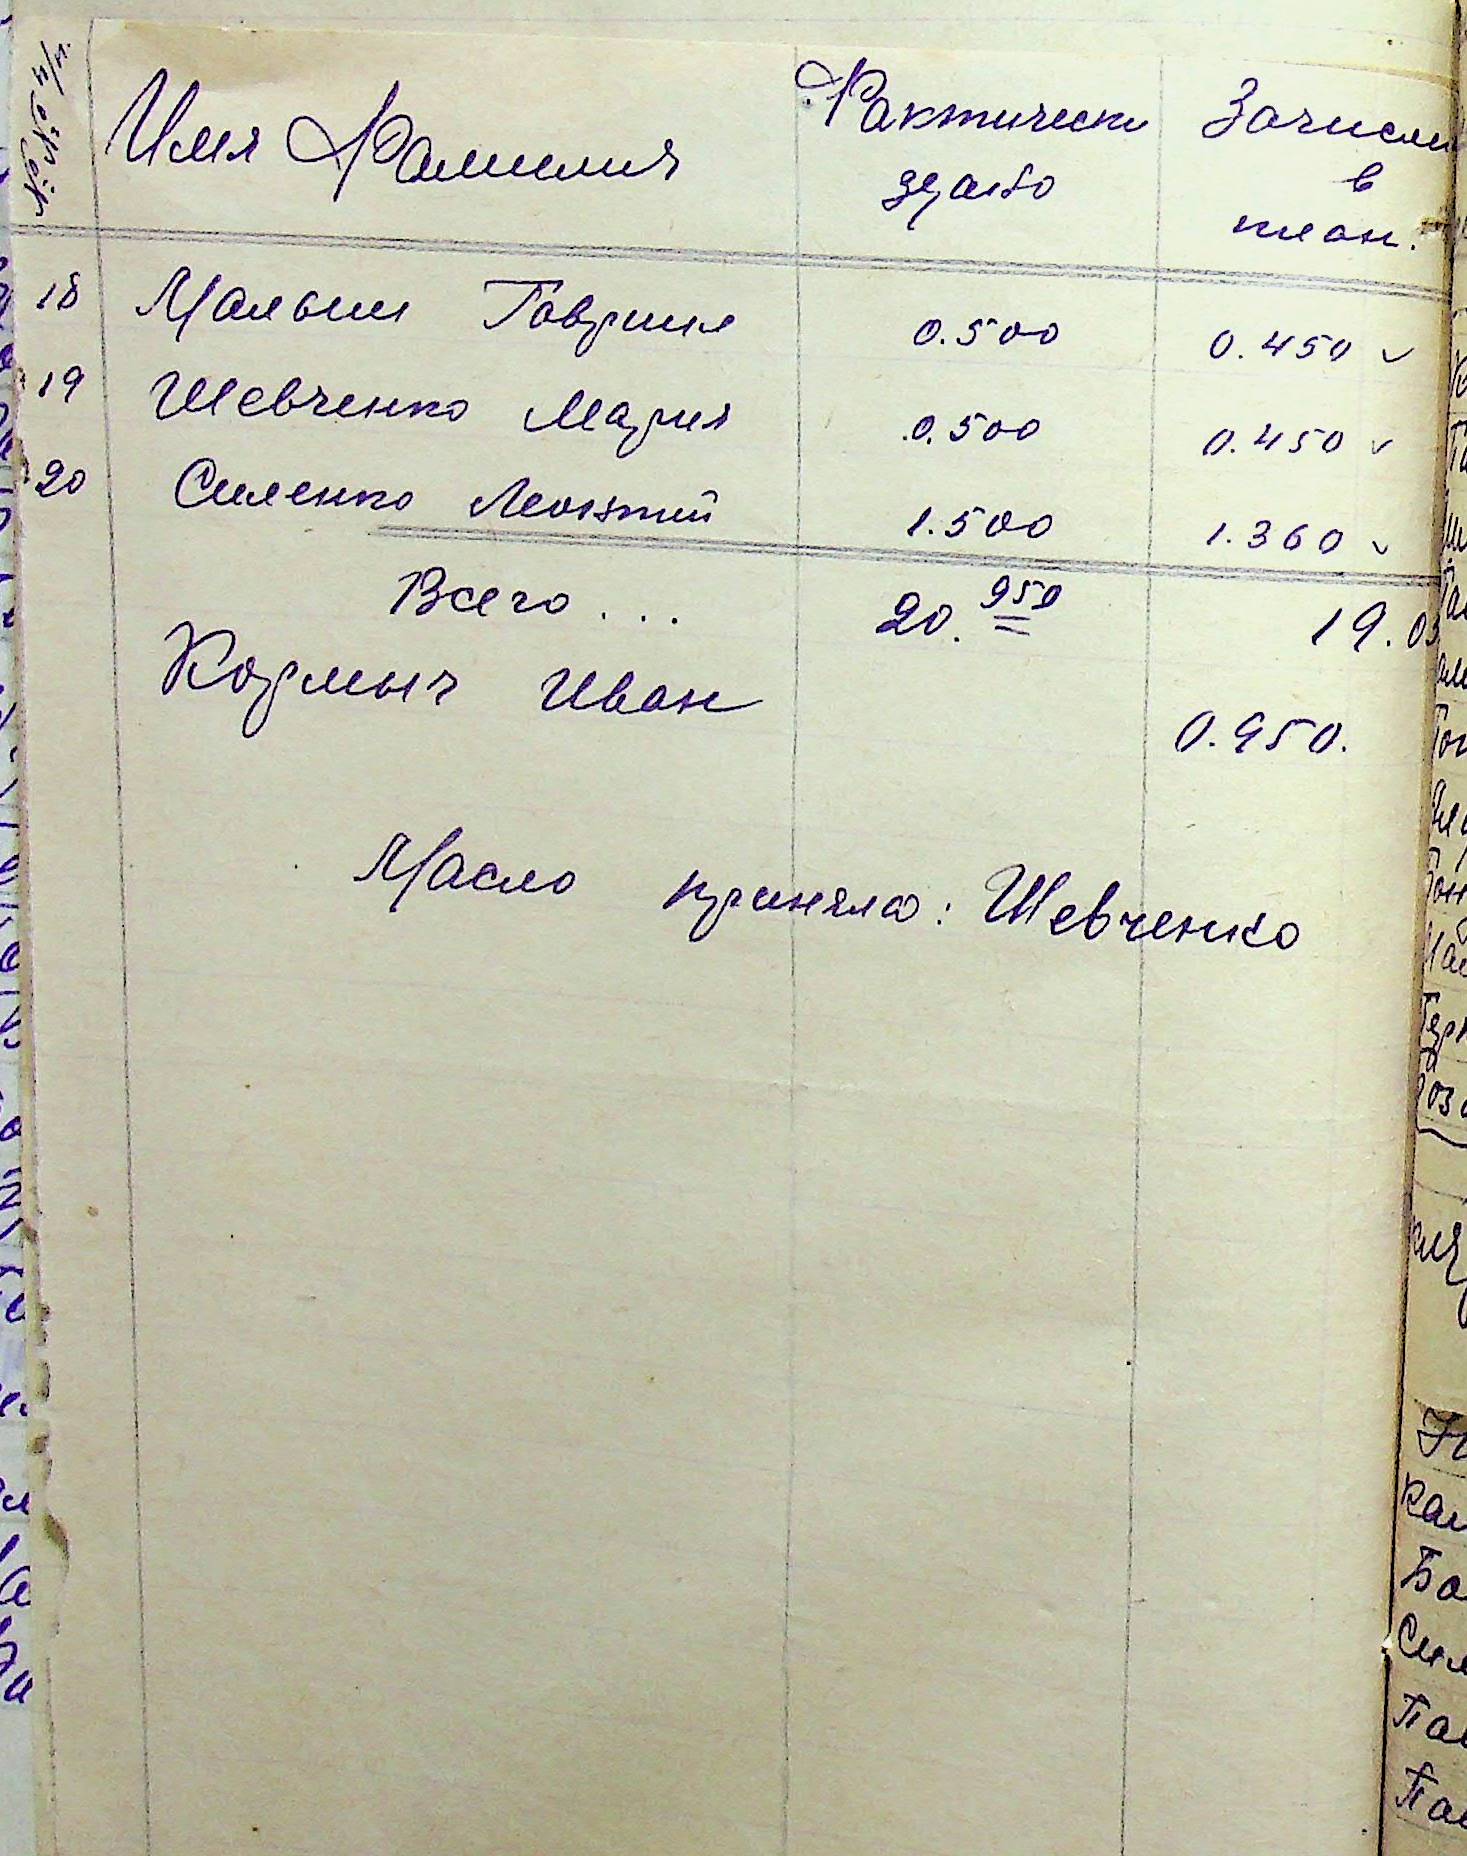 №№ п/п
Имя Фамилия Фактически Зачисли
здано в
план.
18 Малыш Гаврил 0.500 0.450 ✓
19 Шевченко Мария 0.500 0.450 ✓
20 Силенко Леонтий 1.500 1.360 ✓
Всего ... 20.950 19.03
Кормыч Иван 0.950.
Масло приняла: Шевченко